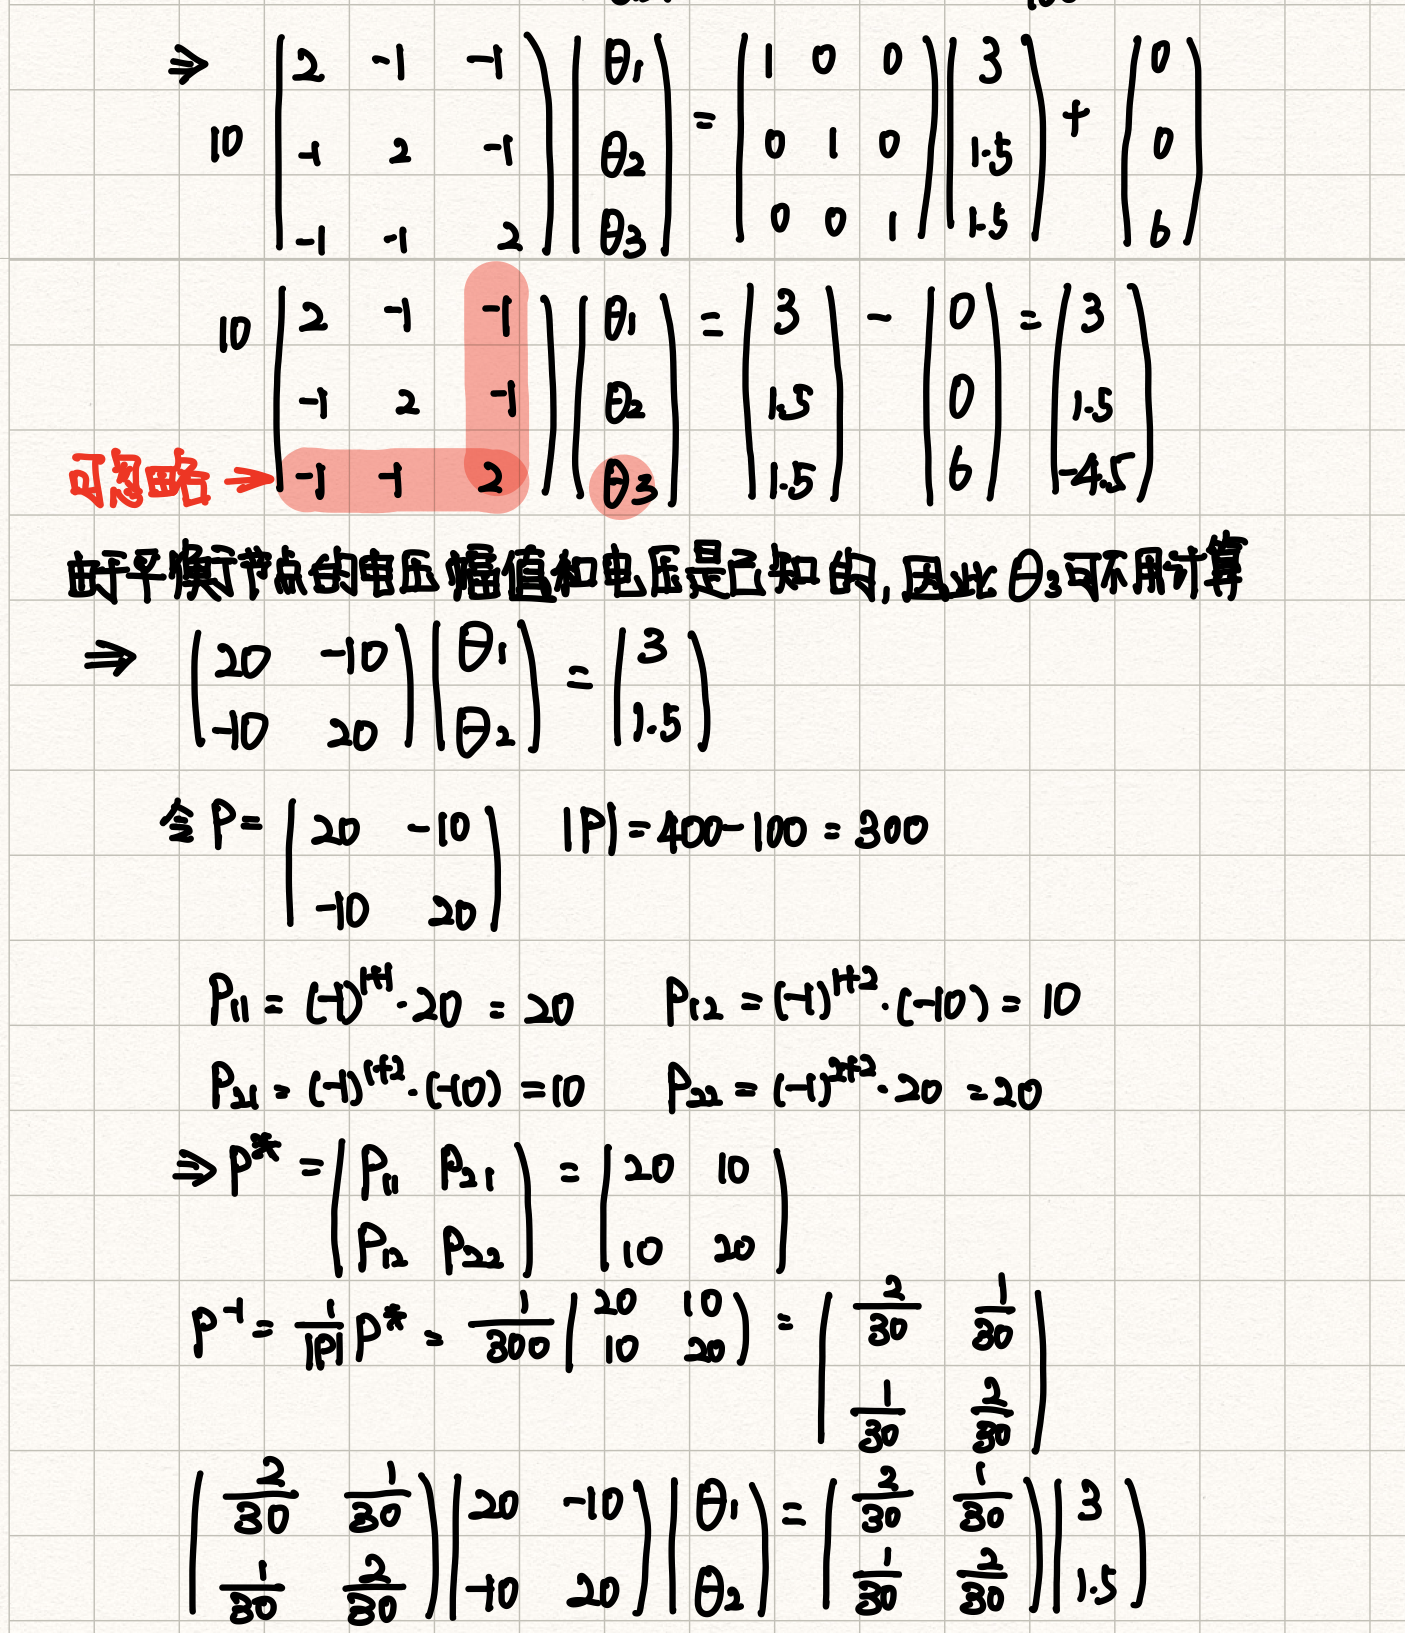 ⇒ 10 (2 -1 -1; -1 2 -1; -1 -1 2) (θ₁; θ₂; θ₃) = (1 0 0; 0 1 0; 0 0 1) (3; 1.5; 1.5) + (0; 0; 6)
10 (2 -1 -1; -1 2 -1; -1 -1 2) (θ₁; θ₂; θ₃) = (3; 1.5; 1.5) - (0; 0; 6) = (3; 1.5; -4.5)
可忽略 →
由于平衡节点的电压幅值和电压是已知的, 因此 θ₃可不用计算
⇒ (20 -10; -10 20) (θ₁; θ₂) = (3; 1.5)
令 P = (20 -10; -10 20) |P| = 400-100 = 300
P₁₁ = (-1)¹⁺¹·20 = 20 P₁₂ = (-1)¹⁺²·(-10) = 10
P₂₁ = (-1)¹⁺²·(-10) = 10 P₂₂ = (-1)²⁺²·20 = 20
⇒ P* = (P₁₁ P₂₁; P₁₂ P₂₂) = (20 10; 10 20)
P⁻¹ = 1/|P| P* = 1/300 (20 10; 10 20) = (2/30 1/30; 1/30 2/30)
(2/30 1/30; 1/30 2/30) (20 -10; -10 20) (θ₁; θ₂) = (2/30 1/30; 1/30 2/30) (3; 1.5)